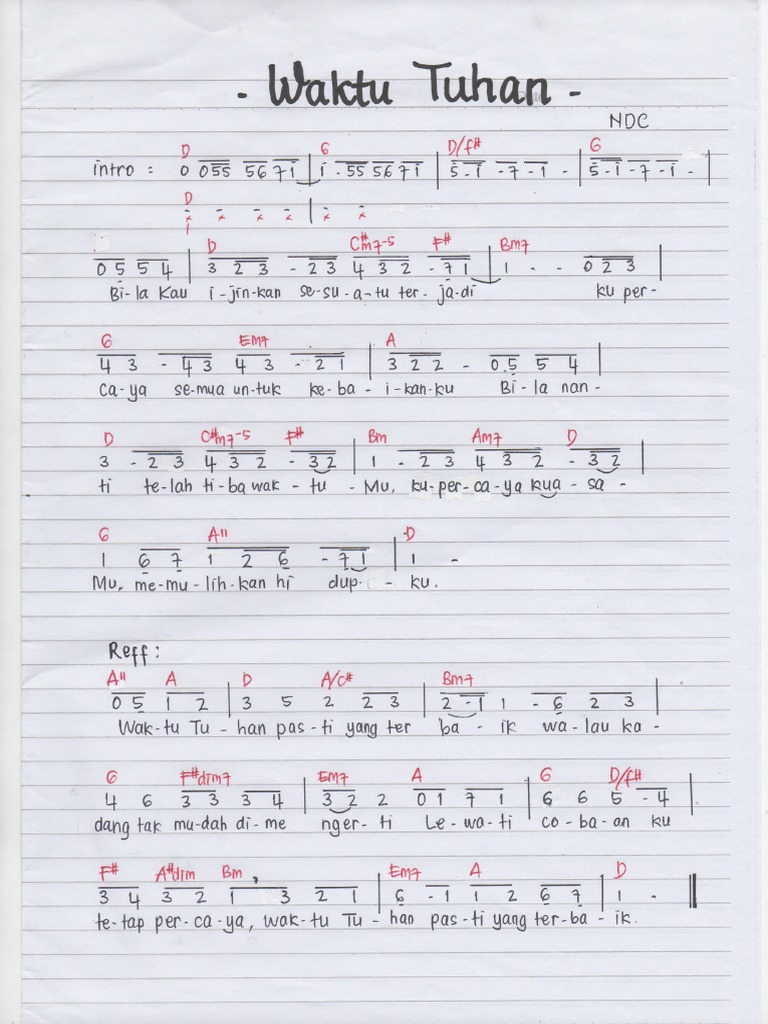 - Waktu Tuhan -
NDC
D G D/f# G
intro : 0 055 5671 | 1 . 55 5671 | 5 - 1 - 7 - 1 - | 5 - 1 - 7 - 1 - |
D
D C#m7-5 F# Bm7
0 5 5 4 | 3 2 3 - 2 3 4 3 2 - 7 1 | 1 - - 0 2 3 |
Bi-la Kau i-jin-kan se-su-a-tu ter-ja-di ku per-
G Em7 A
4 3 - 4 3 4 3 - 2 1 | 3 2 2 - 0.5 5 4 |
Ca-ya se-mua un-tuk ke-ba - i-kan-ku Bi-la nan-
D C#m7-5 F# Bm Am7 D
3 - 2 3 4 3 2 - 3 2 | 1 - 2 3 4 3 2 - 3 2 |
ti te-lah ti-ba wak - tu - Mu, ku-per-ca-ya kua-sa-
G A11 D
1 6 7 1 2 6 - 7 1 | 1 -
Mu, me-mu-lih-kan hi dup - ku.
Reff :
A11 A D A/C# Bm7
0 5 1 2 | 3 5 2 2 3 | 2 - 1 1 - 6 2 3 |
Wak-tu Tu - han pas-ti yang ter ba - ik wa-lau ka-
G F#dim7 Em7 A G D/f#
4 6 3 3 3 4 | 3 2 2 0 1 7 1 | 6 6 5 - 4 |
dang tak mu-dah di-me nger-ti Le-wa-ti co-ba-an ku
F# A#dim Bm Em7 A D
3 4 3 2 1 3 2 1 | 6 - 1 1 2 6 7 | 1 - ||
te-tap per-ca-ya, wak-tu Tu - han pas-ti yang ter-ba - ik.